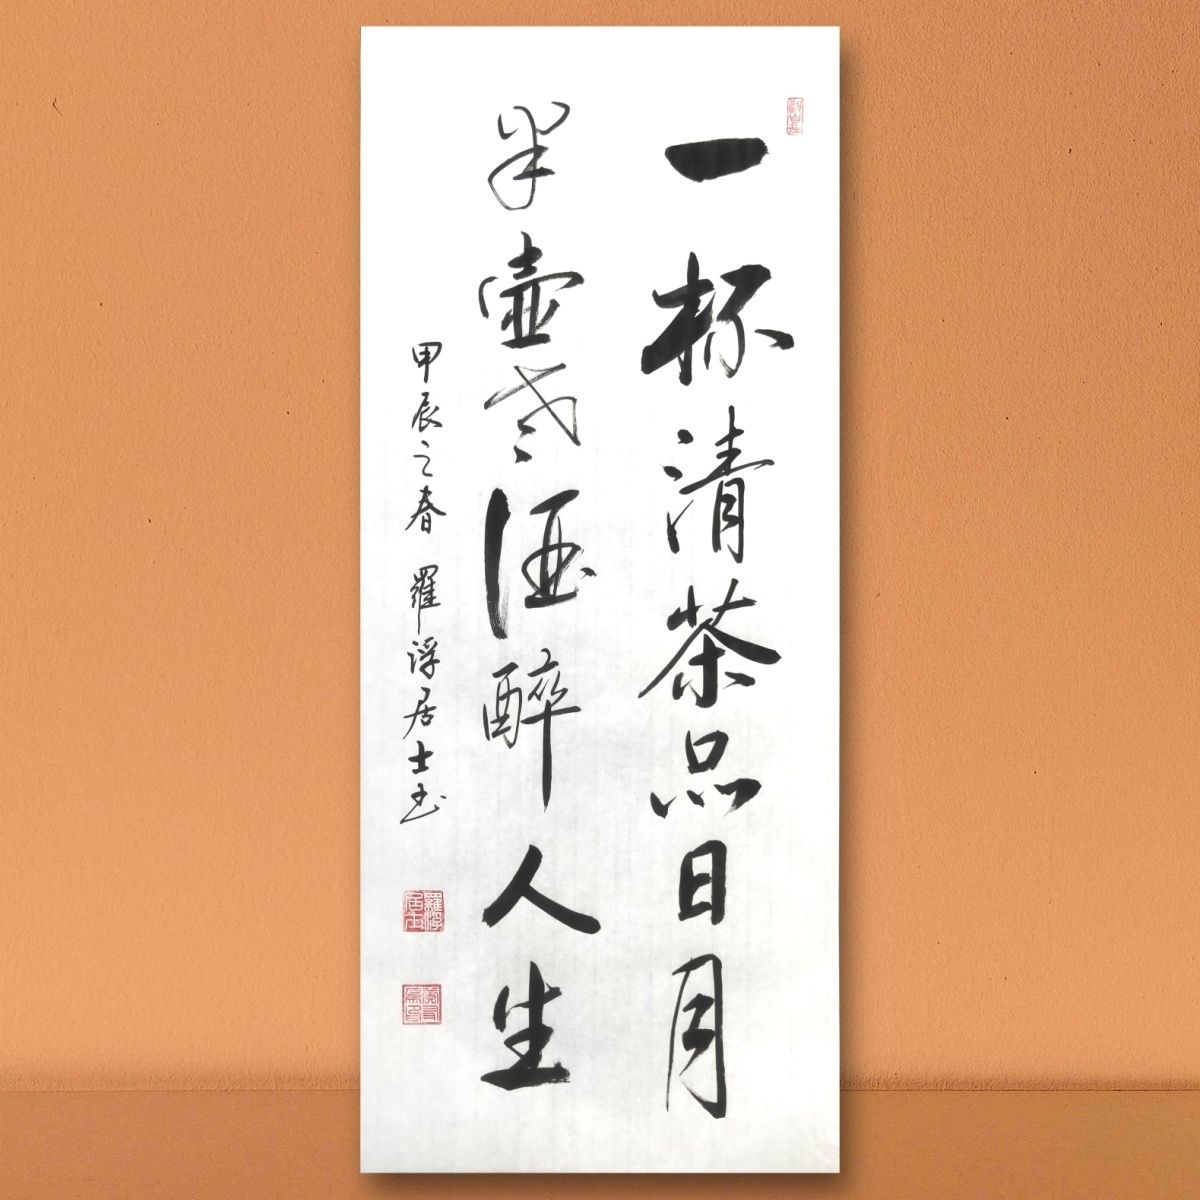 一杯清茶品日月
半壶老酒醉人生
甲辰之春 羅浮居士书
羅浮居士